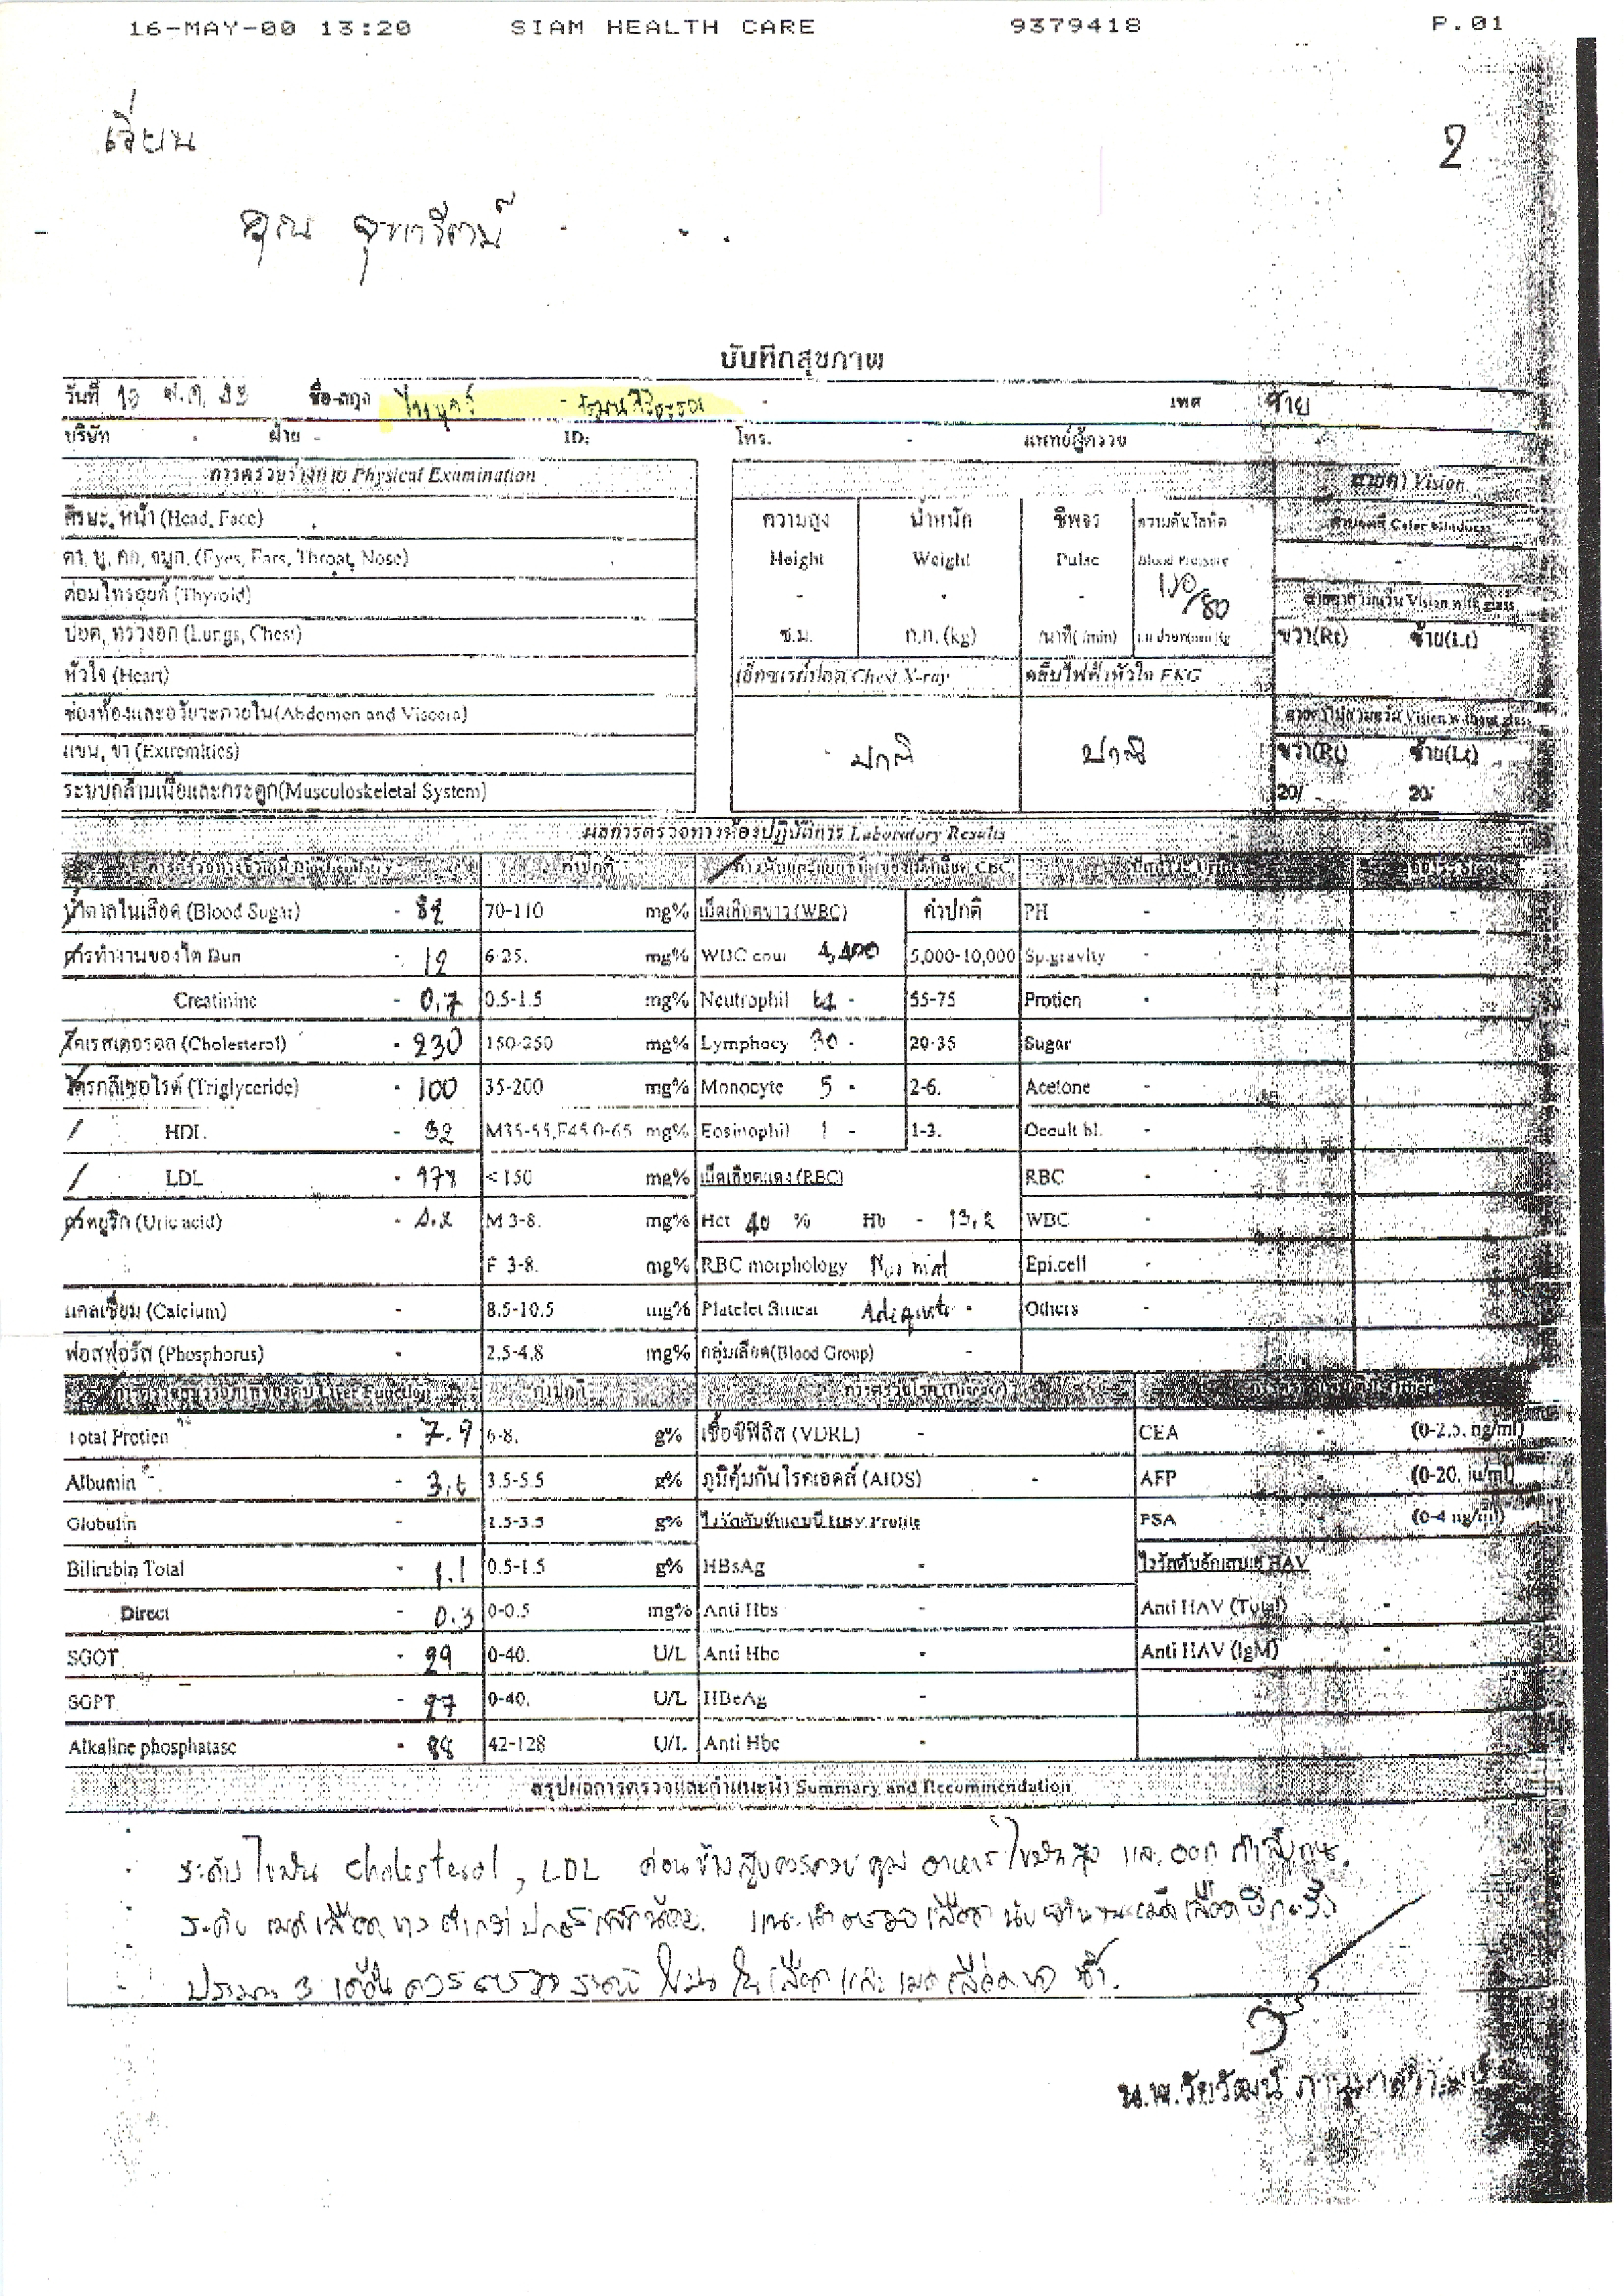 16-MAY-00 13:20 SIAM HEALTH CARE 9379418 P.01
เรียน
2
คุณ
บันทึกสุขภาพ
วันที่ ชื่อ-สกุล เพศ ชาย
บริษัท ฝ่าย - ID: โทร. - แพทย์ผู้ตรวจ
การตรวจร่างกาย Physical Examination สายตา Vision
ศีรษะ, หน้า (Head, Face) ความสูง น้ำหนัก ชีพจร ความดันโลหิต ตาบอดสี Color blindness
ตา, หู, คอ, จมูก. (Eyes, Ears, Throat, Nose) Height Weight Pulse Blood Pressure -
ต่อมไทรอยด์ (Thyroid) - - - 110/80 Vision with glass
ปอด, ทรวงอก (Lungs, Chest) ซ.ม. ก.ก. (kg) /นาที( /min) ขวา(Rt) ซ้าย(Lt)
หัวใจ (Heart) เอ็กซเรย์ปอด Chest X-ray คลื่นไฟฟ้าหัวใจ EKG
ช่องท้องและอวัยวะภายใน(Abdomen and Viscera) Vision without glass
แขน, ขา (Extremities) ปกติ ปกติ ขวา(Rt) ซ้าย(Lt)
ระบบกล้ามเนื้อและกระดูก(Musculoskeletal System) 20/ - 20/
ผลการตรวจทางห้องปฏิบัติการ Laboratory Results
ค่าปกติ CBC
น้ำตาลในเลือด (Blood Sugar) - 70-110 mg% เม็ดเลือดขาว (WBC) ค่าปกติ PH -
การทำงานของไต Bun - 12 6-25. mg% WBC coun 4,400 5,000-10,000 Sp.gravity -
Creatinine - 0.7 0.5-1.5 mg% Neutrophil 64 - 55-75 Protien -
โคเรสเตอรอล (Cholesterol) - 230 150-250 mg% Lymphocy 30 - 20-35 Sugar
ไตรกลีเซอไรด์ (Triglyceride) - 100 35-200 mg% Monocyte 5 - 2-6. Acetone -
HDL - 32 M35-55,F45.0-65 mg% Eosinophil 1 - 1-3. Occult bl. -
LDL - 178 <150 mg% เม็ดเลือดแดง (RBC) RBC -
กรดยูริก (Uric acid) - 4.2 M 3-8. mg% Hct 40 % Hb - 13.2 WBC -
F 3-8. mg% RBC morphology Normal Epi.cell -
แคลเซี่ยม (Calcium) - 8.5-10.5 mg% Platelet Smear Adequate - Others -
ฟอสฟอรัส (Phosphorus) - 2.5-4.8 mg% กลุ่มเลือด(Blood Group) -
Liver Function ค่าปกติ การตรวจโรค (Disease)
Total Protien - 7.9 6-8. g% เชื้อซิฟิลิส (VDRL) - CEA - (0-2.5. ng/ml)
Albumin - 3.6 3.5-5.5 g% ภูมิคุ้มกันโรคเอดส์ (AIDS) - AFP - (0-20. iu/ml)
Globulin - 1.5-3.5 g% ไวรัสตับอักเสบบี HBV Profile PSA - (0-4 ng/ml)
Bilirubin Total - 1.1 0.5-1.5 g% HBsAg - ไวรัสตับอักเสบเอ HAV
Direct - 0.3 0-0.5 mg% Anti Hbs - Anti HAV (Total) -
SGOT - 29 0-40. U/L Anti Hbc - Anti HAV (IgM) -
SGPT - 27 0-40. U/L HBeAg -
Alkaline phosphatase - 88 42-128 U/L Anti Hbe -
สรุปผลการตรวจและคำแนะนำ Summary and Recommendation
ระดับไขมัน Cholesterol, LDL ค่อนข้างสูงควรควบคุม อาหารไขมันสูง และออกกำลังกาย.
ระดับ เม็ดเลือดขาว ต่ำกว่าปกติเล็กน้อย. แนะนำตรวจเลือด นับจำนวนเม็ดเลือดอีกครั้ง
ประมาณ 3 เดือน ควรตรวจ ระดับไขมันในเลือด และ เม็ดเลือดขาว ซ้ำ.
น.พ.วัยวัฒน์